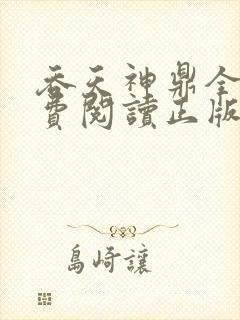 吞天神鼎全
費閱讀正版
島崎讓